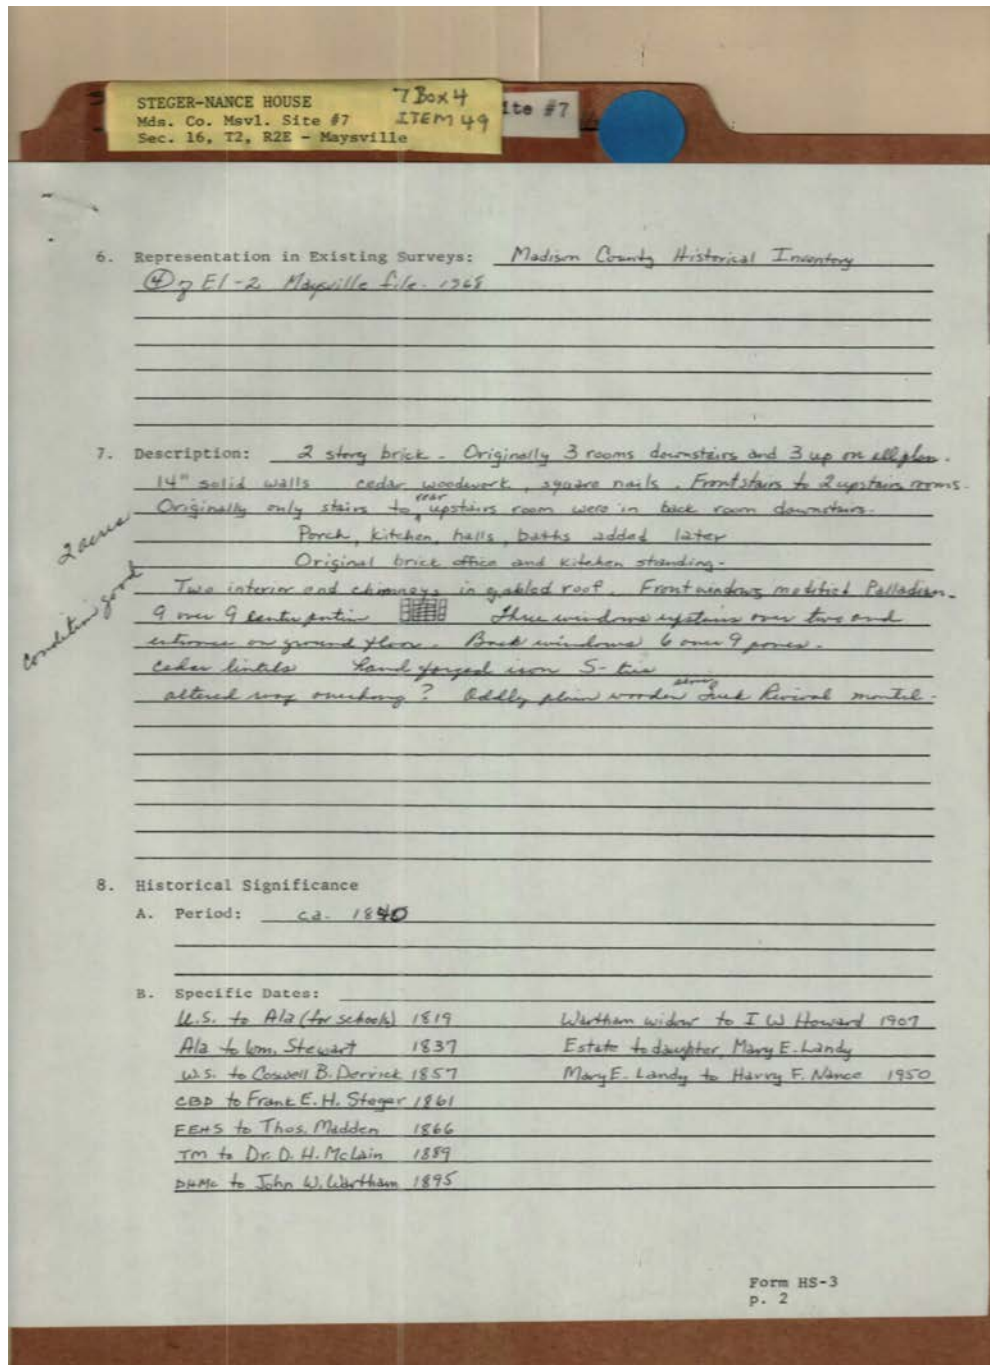 STEGER-NANCE HOUSE
Mds. Co. Msvl. Site #7
Sec. 16, T2, R2E - Maysville
7 Box 4
ITEM 49
ite #7
6. Representation in Existing Surveys: Madison County Historical Inventory
④ of E1-2 Maysville file - 1968
7. Description: 2 story brick - Originally 3 rooms downstairs and 3 up on ell plan.
14" solid walls cedar woodwork, square nails. Front stairs to 2 upstairs rooms.
Originally only stairs to rear upstairs room were in back room downstairs.
Porch, kitchen, halls, baths added later
Original brick office and kitchen standing -
Two interior end chimneys in gabled roof. Front windows modified Palladian -
9 over 9 center portion Three windows upstairs over two and
entrance on ground floor. Back windows 6 over 9 panes.
cedar lintels hand forged iron S-ties
altered overhang? Oddly plain wooden Greek Revival mantel -
2 acres
condition good
8. Historical Significance
A. Period: ca. 1840
B. Specific Dates:
U.S. to Ala (for schools) 1819
Ala to Wm. Stewart 1837
W.S. to Coswell B. Derrick 1857
CBD to Frank E. H. Steger 1861
FEHS to Thos. Madden 1866
TM to Dr. D. H. McLain 1889
DHMc to John W. Wartham 1895
Wartham widow to I W Howard 1907
Estate to daughter, Mary E. Landy
Mary E. Landy to Harry F. Nance 1950
Form HS-3
p. 2